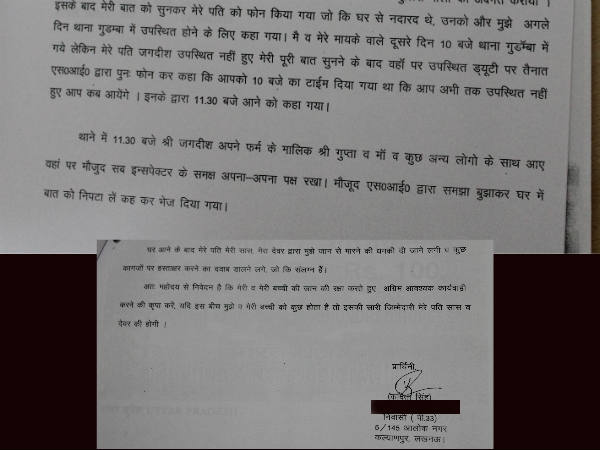 इसके बाद मेरी बात को सुनकर मेरे पति को फोन किया गया जो कि घर से नदारद थे, उनको और मुझे अगले
दिन थाना गुडम्बा में उपस्थित होने के लिए कहा गया। मै व मेरे मायके वाले दूसरे दिन 10 बजे थाना गुडॅम्बा में
गये लेकिन मेरे पति जगदीश उपस्थित नहीं हुए मेरी पूरी बात सुनने के बाद वहॉं पर उपस्थित ड्यूटी पर तैनात
एस०आई० द्वारा पुनः फोन कर कहा कि आपको 10 बजे का टाईम दिया गया था कि आप अभी तक उपस्थित नहीं
हुए आप कब आयेंगे । इनके द्वारा 11.30 बजे आने को कहा गया।
थाने में 11.30 बजे श्री जगदीश अपने फर्म के मालिक श्री गुप्ता व मॉ व कुछ अन्य लोगो के साथ आए
वहां पर मौजूद सब इन्सपेक्टर के समक्ष अपना–अपना पक्ष रखा। मौजूद एस०आई० द्वारा समझा बुझाकर घर में
बात को निपटा लें कह कर भेज दिया गया।
घर आने के बाद मेरे पति मेरी सास, मेरा देवर द्वारा मुझे जान से मारने की धमकी दी जाने लगी व कुछ
कागजों पर हस्ताक्षर करने का दवाब डालने लगे, जो कि संलग्न हैं।
अतः महोदय से निवेदन है कि मेरी व मेरी बच्ची की जान की रक्षा करते हुए अग्रिम आवश्यक कार्यवाही
करने की कृपा करें, यदि इस बीच मुझे व मेरी बच्ची को कुछ होता है तो इसकी सारी जिम्मेदारी मेरे पति सास व
देवर की होगी ।
प्रार्थिनी
सिंह)
निवासी ( पी.33)
6/145 आलोक नगर
कल्याणपुर, लखनऊ।